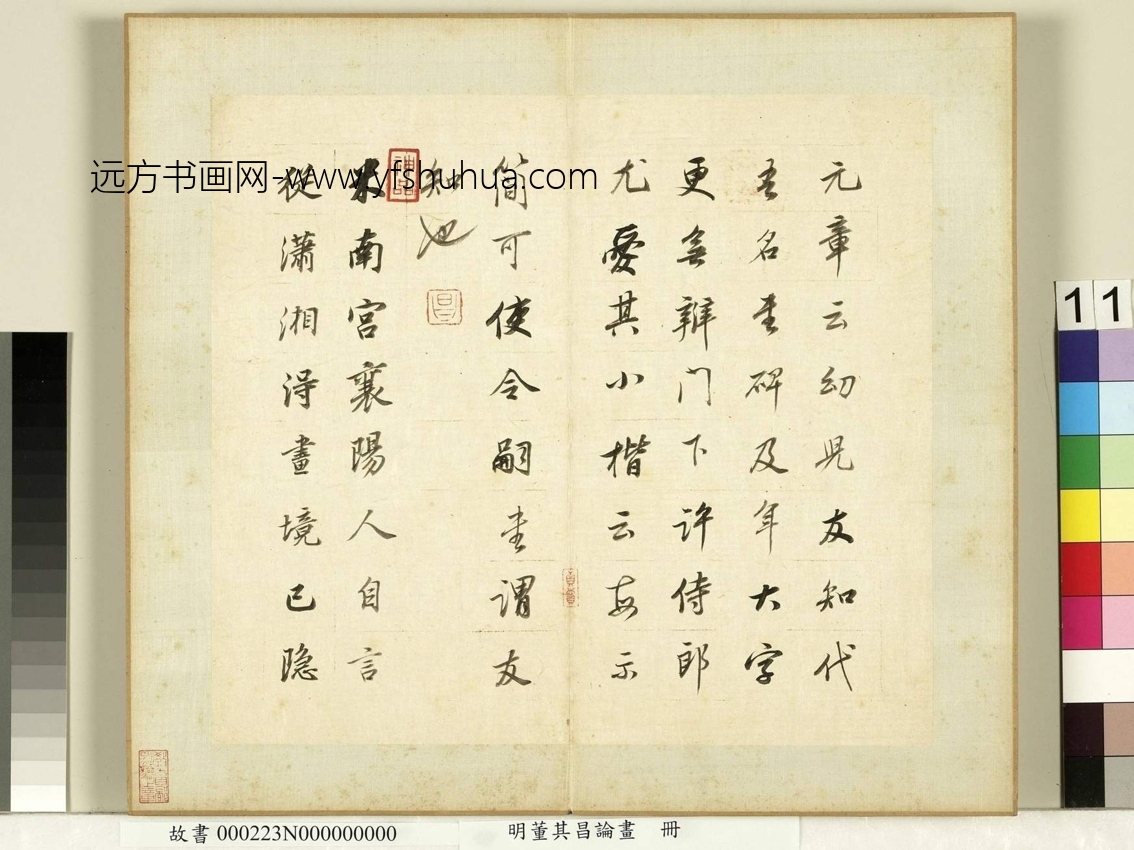 元章云幼児友知代
吾名書碑及年大字
更無辨門下許侍郎
尤愛其小楷云每示
簡可使令嗣書謂友
知也
米南宮襄陽人自言
從瀟湘得畫境已隐
远方书画网-www.yfshuhua.com
11
故書 000223N000000000
明董其昌論畫 冊